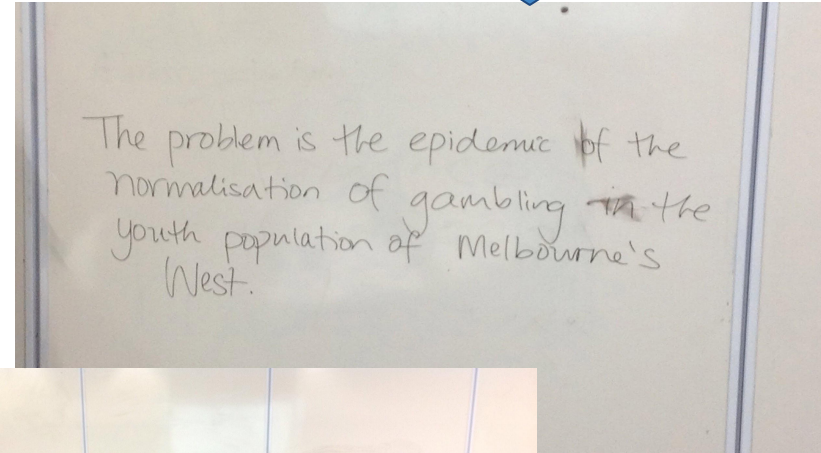 The problem is the epidemic of the
normalisation of gambling in the
youth population of Melbourne's
West.